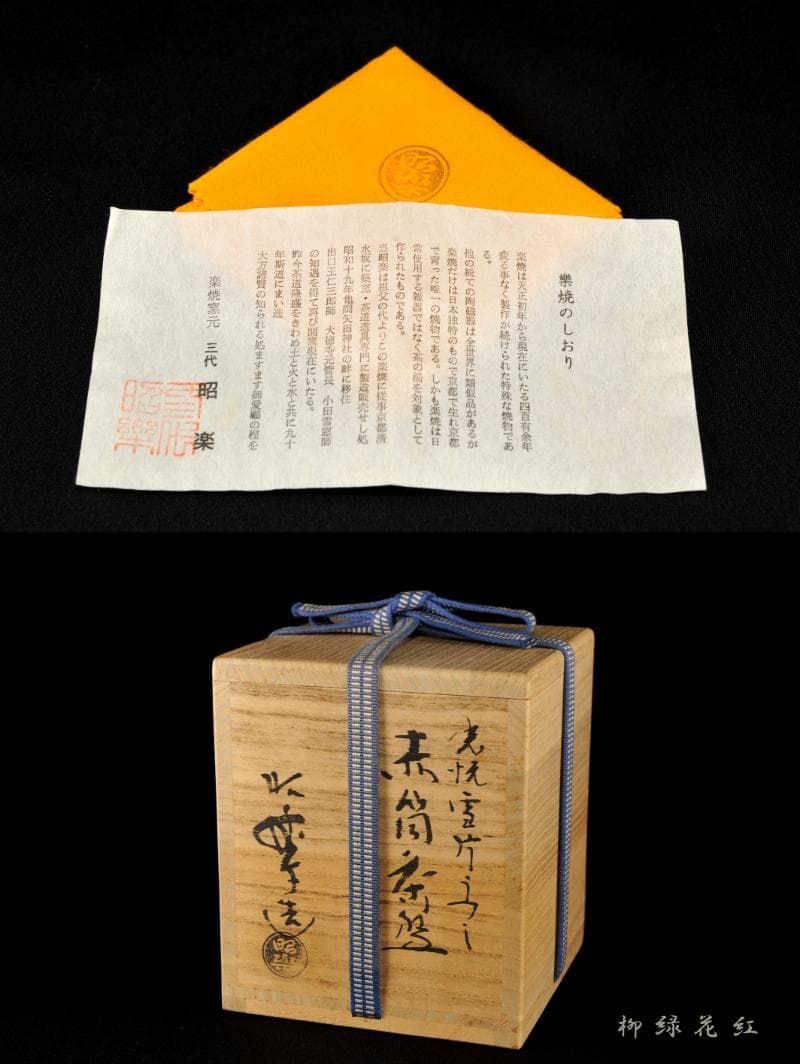 楽焼のしおり
楽焼は天正初年から現在にいたる四百有余年
変る事なく製作が続けられた特殊な焼物であ
る。
他の総ての陶磁器は全世界に類似品があるが
楽焼だけは日本独特のもので京都で生れ京都
で育った唯一の焼物である。しかも楽焼は日
常使用する雑器ではなく茶の湯を対象として
作られたものである。
当昭楽は祖父の代よりこの楽焼に従事京都清
水坂に築窯・茶道道具専門に製造販売せし処
昭和十九年亀岡矢田神社の畔に移住
出口王仁三郎師 大徳寺元管長 小田雪窓師
の知遇を得て再び開窯現在にいたる。
昨今茶道隆盛をきわめ土と火と水と共に九十
年斯道にまい進
大方諸賢の知られる処ますます御愛顧の程を
楽焼窯元 三代 昭楽
三代昭楽
昭楽
光悦雪片うつし
赤筒茶盌
昭楽造
昭楽
柳緑花紅